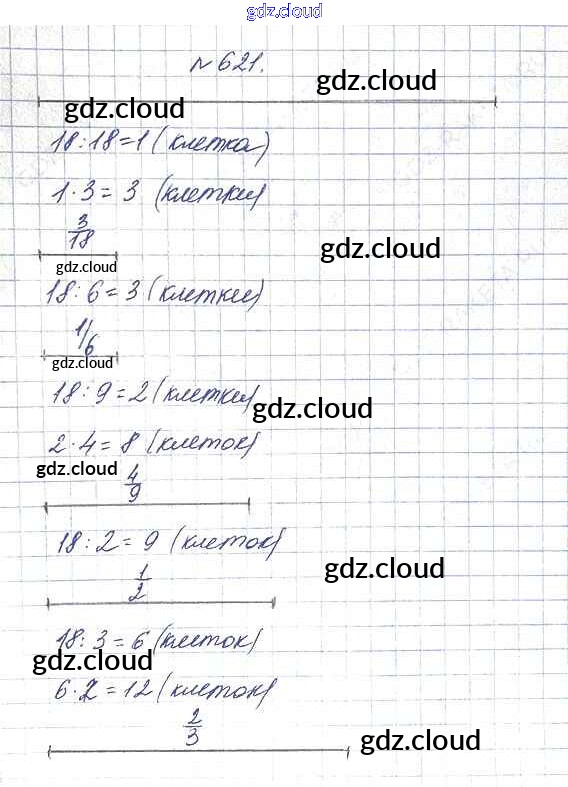 gdz.cloud
№ 621.
gdz.cloud
gdz.cloud
18:18=1 (клетка)
1·3=3 (клетки)
3/18
gdz.cloud
gdz.cloud
18:6=3 (клетки)
1/6
gdz.cloud
18:9=2 (клетки)
gdz.cloud
2·4=8 (клеток)
gdz.cloud
4/9
18:2=9 (клеток)
1/2
gdz.cloud
18:3=6 (клеток)
gdz.cloud
6·2=12 (клеток)
2/3
gdz.cloud